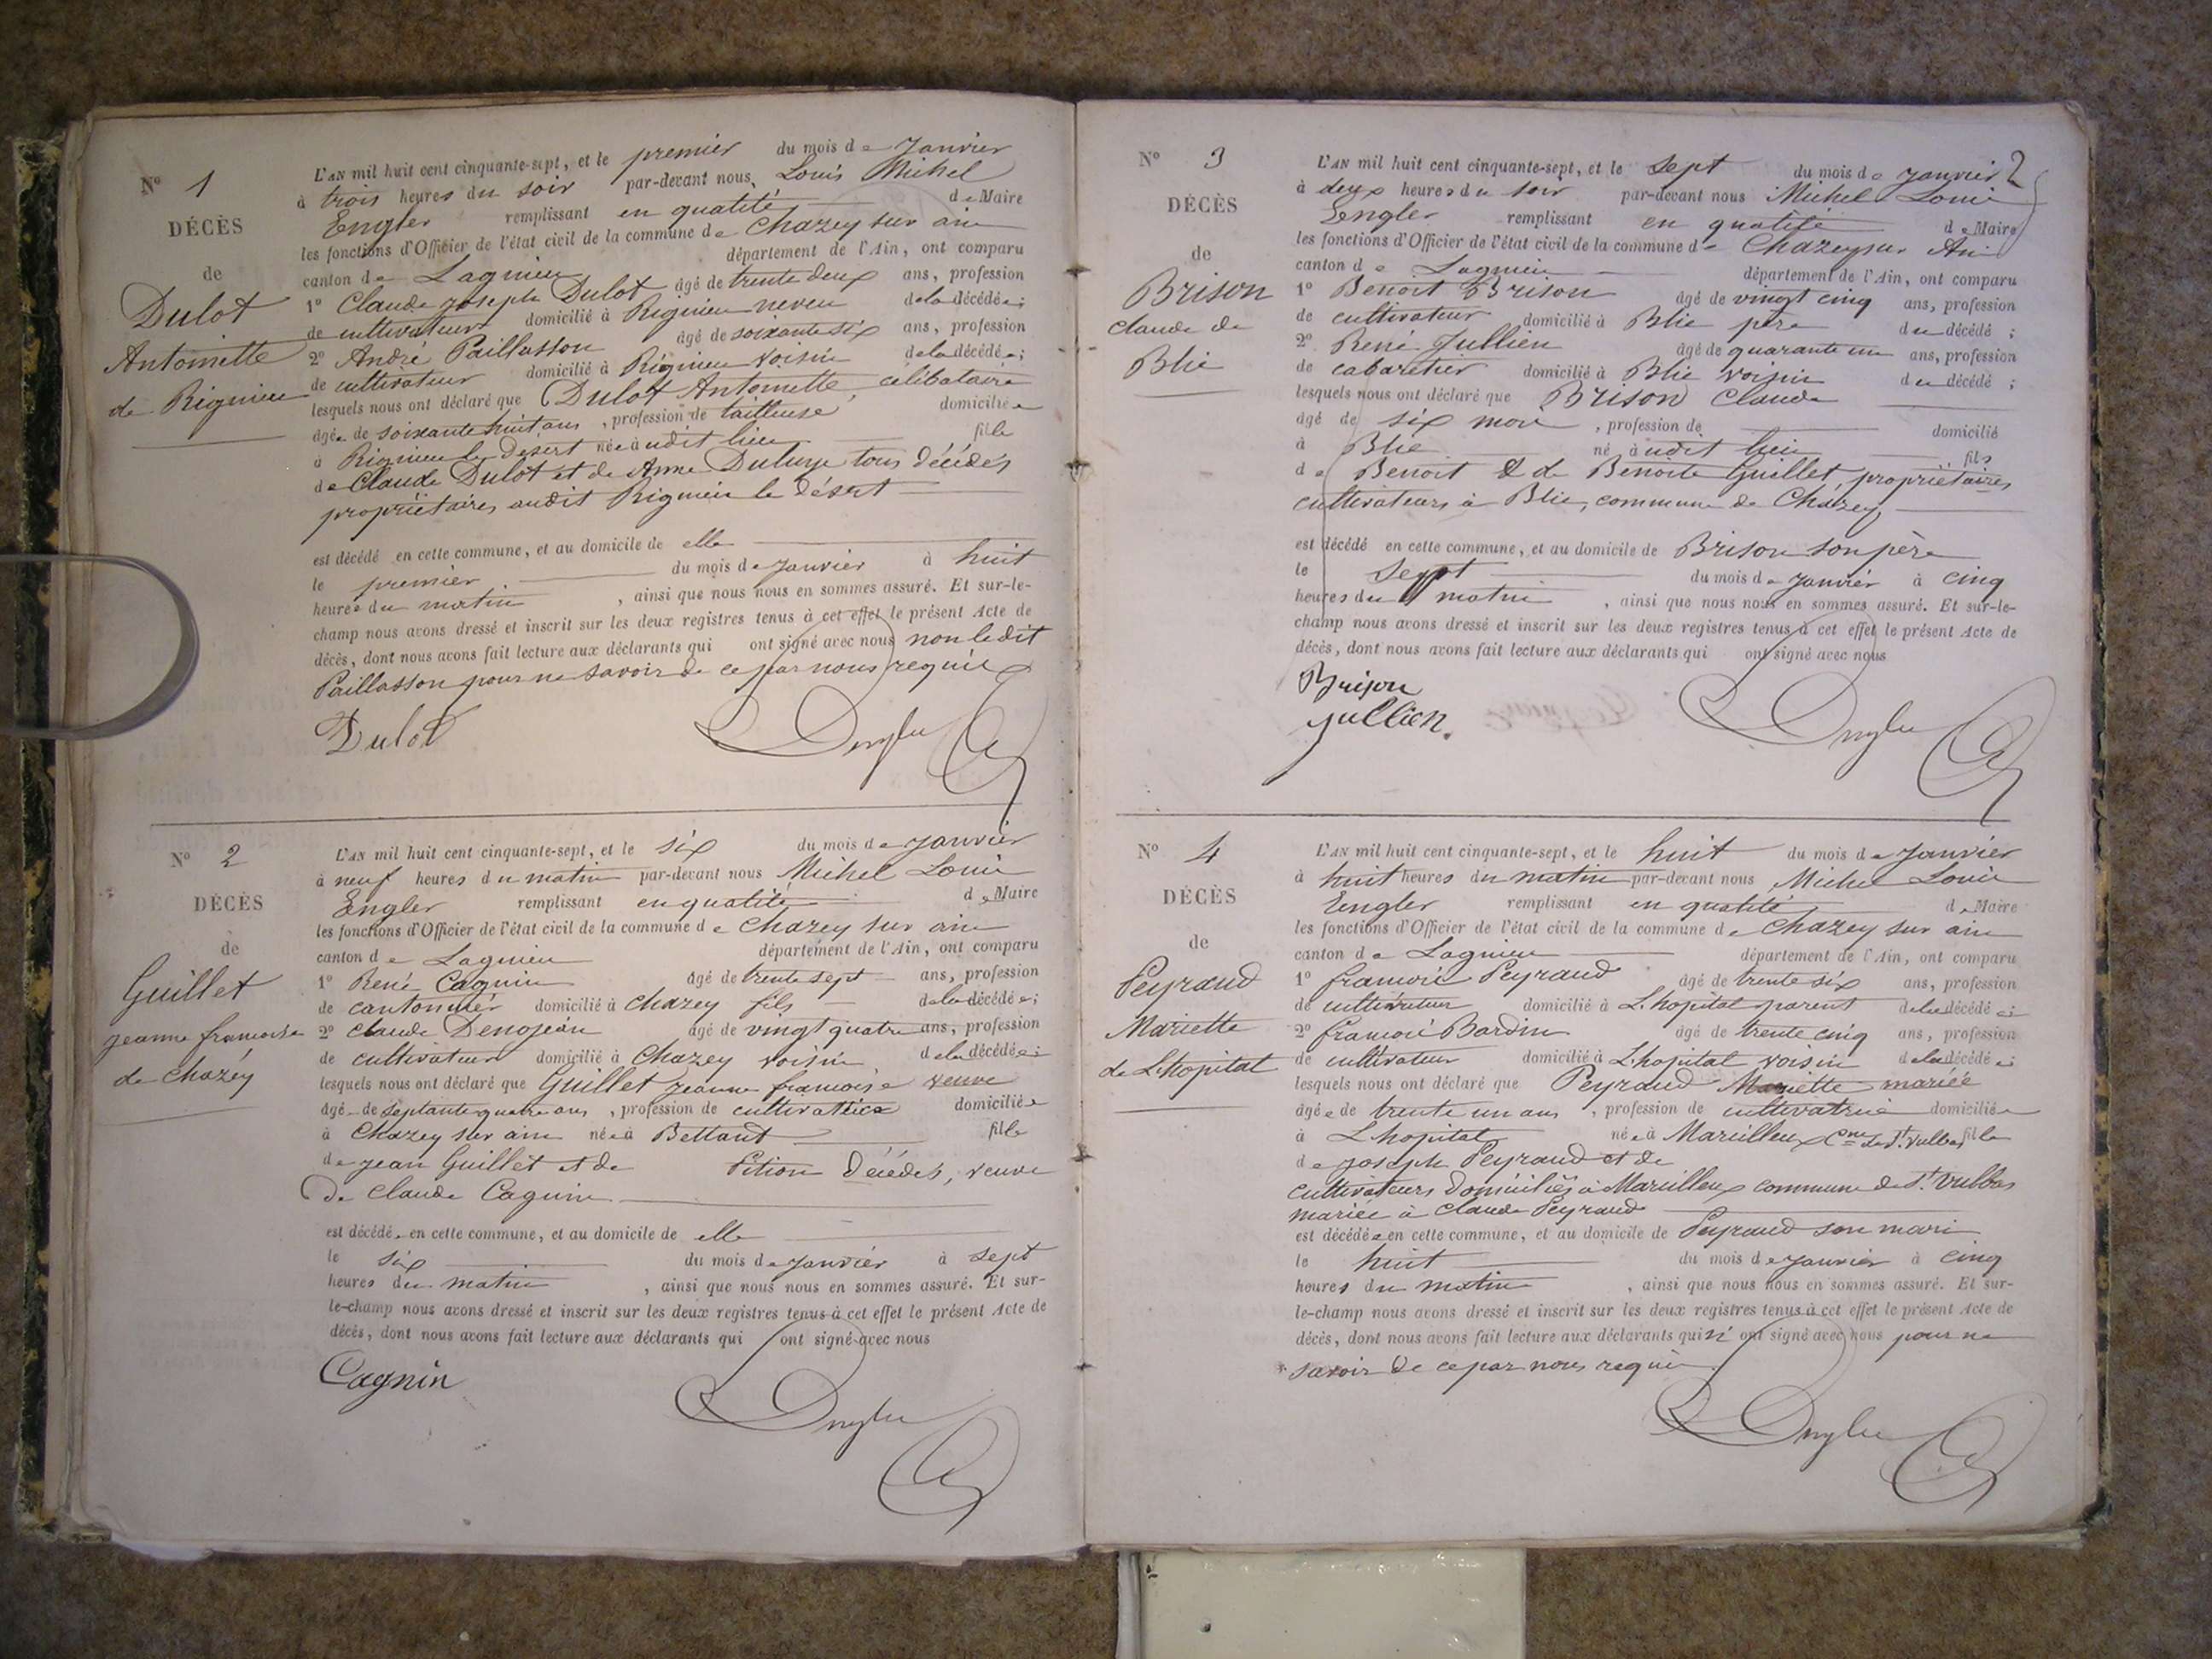 N° 1
DÉCÈS
de
Dulot
Antoinette
de Rignieu
L'AN mil huit cent cinquante-sept, et le premier du mois de Janvier
à trois heures du soir par-devant nous, Louis Michel
Engler remplissant en qualité de Maire
les fonctions d'Officier de l'état civil de la commune de Chazey sur ain
canton de Lagnieu département de l'Ain, ont comparu
1° Claude joseph Dulot âgé de trente deux ans, profession
de cultivateur domicilié à Rignieu neveu de la décédée;
2° André Paillasson âgé de soixante six ans, profession
de cultivateur domicilié à Rignieu voisin de la décédée;
lesquels nous ont déclaré que Dulot Antoinette, célibataire
âgée de soixante huit ans, profession de tailleuse domiciliée
à Rignieu le Désert née audit lieu fille
de Claude Dulot et de Anne tous décédés
propriétaires audit Rignieu le désert
est décédé en cette commune, et au domicile de elle
le premier du mois de Janvier à huit
heures du matin, ainsi que nous nous en sommes assuré. Et sur-le-
champ nous avons dressé et inscrit sur les deux registres tenus à cet effet le présent Acte de
décès, dont nous avons fait lecture aux déclarants qui ont signé avec nous non le dit
Paillasson pour ne savoir de ce par nous requis
Dulot Engler
N° 2
DÉCÈS
de
Guillet
jeanne francoise
de Chazey
L'AN mil huit cent cinquante-sept, et le six du mois de janvier
à neuf heures du matin par-devant nous Michel Louis
Engler remplissant en qualité de Maire
les fonctions d'Officier de l'état civil de la commune de Chazey sur ain
canton de Lagnieu département de l'Ain, ont comparu
1° René Cagnin âgé de trente sept ans, profession
de cantonnier domicilié à Chazey fils de la décédée;
2° Claude Denojean âgé de vingt quatre ans, profession
de cultivateur domicilié à Chazey voisin de la décédée;
lesquels nous ont déclaré que Guillet jeanne francoise veuve
âgée de septante quatre ans, profession de cultivatrice domiciliée
à Chazey sur ain née à Bettant fille
de jean Guillet et de Pition décédés, veuve
de Claude Cagnin
est décédée en cette commune, et au domicile de elle
le six du mois de janvier à sept
heures du matin, ainsi que nous nous en sommes assuré. Et sur-
le-champ nous avons dressé et inscrit sur les deux registres tenus à cet effet le présent Acte de
décès, dont nous avons fait lecture aux déclarants qui ont signé avec nous
Cagnin Engler
2
N° 3
DÉCÈS
de
Brison
claude de
Blie
L'AN mil huit cent cinquante-sept, et le sept du mois de janvier
à deux heures du soir par-devant nous Michel Louis
Engler remplissant en qualité de Maire
les fonctions d'Officier de l'état civil de la commune de Chazey sur Ain
canton de Lagnieu département de l'Ain, ont comparu
1° Benoit Brison âgé de vingt cinq ans, profession
de cultivateur domicilié à Blie père du décédé;
2° René Jullien âgé de quarante un ans, profession
de cabaretier domicilié à Blie voisin du décédé;
lesquels nous ont déclaré que Brison Claude
âgé de six mois, profession de domicilié
à Blie né audit lieu fils
de Benoit & de Benoite Guillet, propriétaires
cultivateurs à Blie, commune de Chazey
est décédé en cette commune, et au domicile de Brison son père
le Sept du mois de janvier à cinq
heures du matin, ainsi que nous nous en sommes assuré. Et sur-le-
champ nous avons dressé et inscrit sur les deux registres tenus à cet effet le présent Acte de
décès, dont nous avons fait lecture aux déclarants qui ont signé avec nous
Brison
jullien Engler
N° 4
DÉCÈS
de
Peyraud
Mariette
de L'hopital
L'AN mil huit cent cinquante-sept, et le huit du mois de janvier
à huit heures du matin par-devant nous Michel Louis
Engler remplissant en qualité de Maire
les fonctions d'Officier de l'état civil de la commune de Chazey sur ain
canton de Lagnieu département de l'Ain, ont comparu
1° francois Peyraud âgé de trente six ans, profession
de cultivateur domicilié à L'hopital parent de la décédée;
2° francois Bardin âgé de trente cinq ans, profession
de cultivateur domicilié à L'hopital voisin de la décédée;
lesquels nous ont déclaré que Peyraud Mariette mariée
âgée de trente un ans, profession de cultivatrice domiciliée
à L'hopital née à Marcilleux Cne de St. Vulbas fille
de joseph Peyraud et de
cultivateurs domiciliés à Marcilleux commune de St. Vulbas
mariée à Claude Peyraud
est décédée en cette commune, et au domicile de Peyraud son mari
le huit du mois de janvier à cinq
heures du matin, ainsi que nous nous en sommes assuré. Et sur-
le-champ nous avons dressé et inscrit sur les deux registres tenus à cet effet le présent Acte de
décès, dont nous avons fait lecture aux déclarants qui n'ont signé avec nous pour ne
savoir de ce par nous requis
Engler